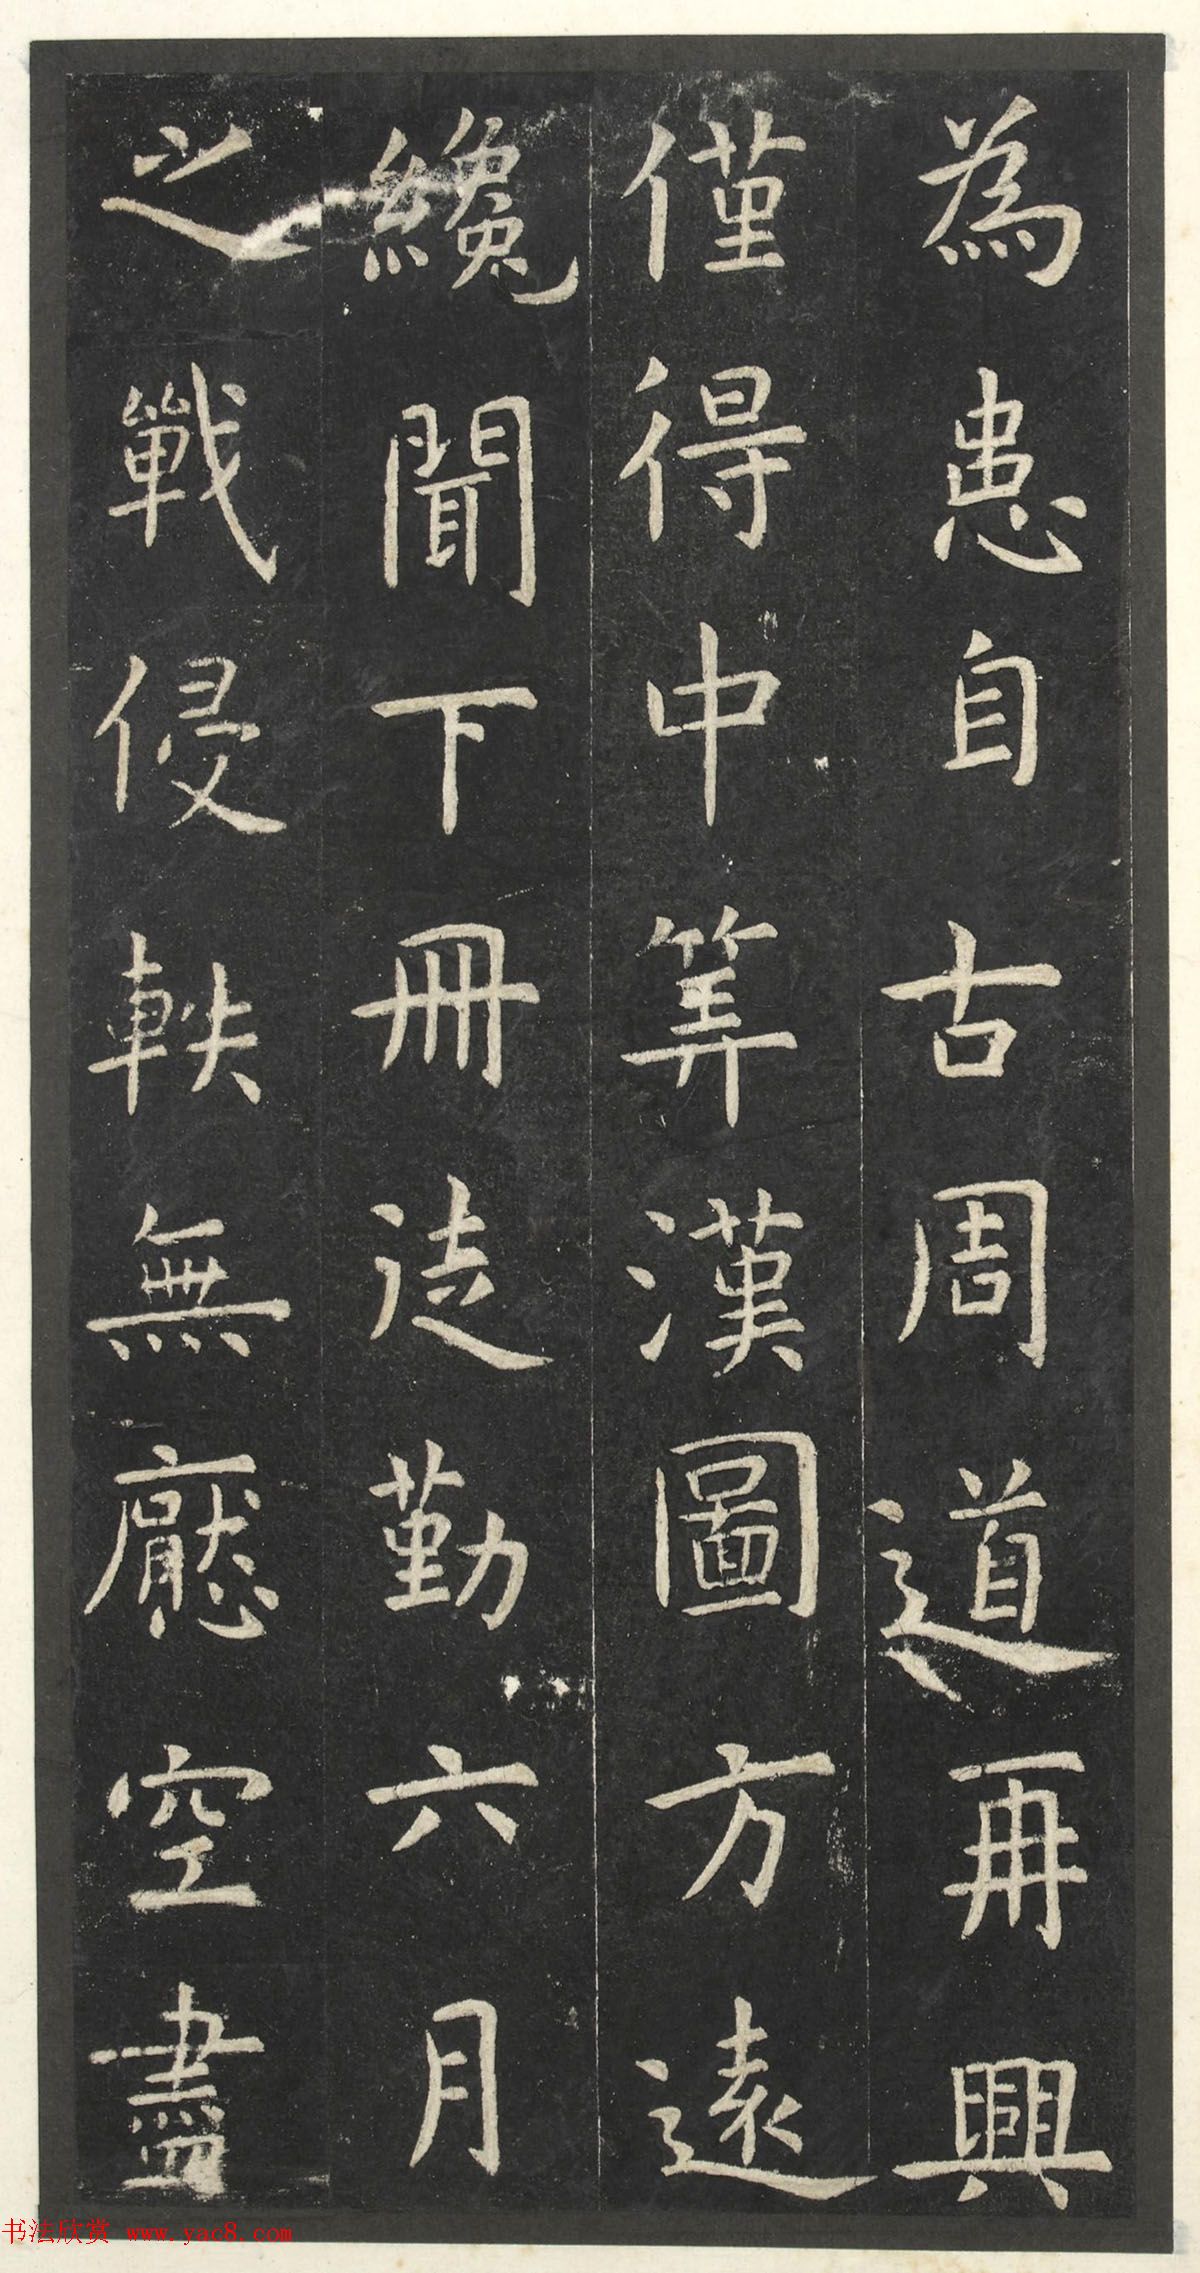 為患自古周道再興
僅得中筭漢圖方遠
纔聞下冊徒勤六月
之戰侵軼無猒空盡
书法欣赏 www.yac8.com